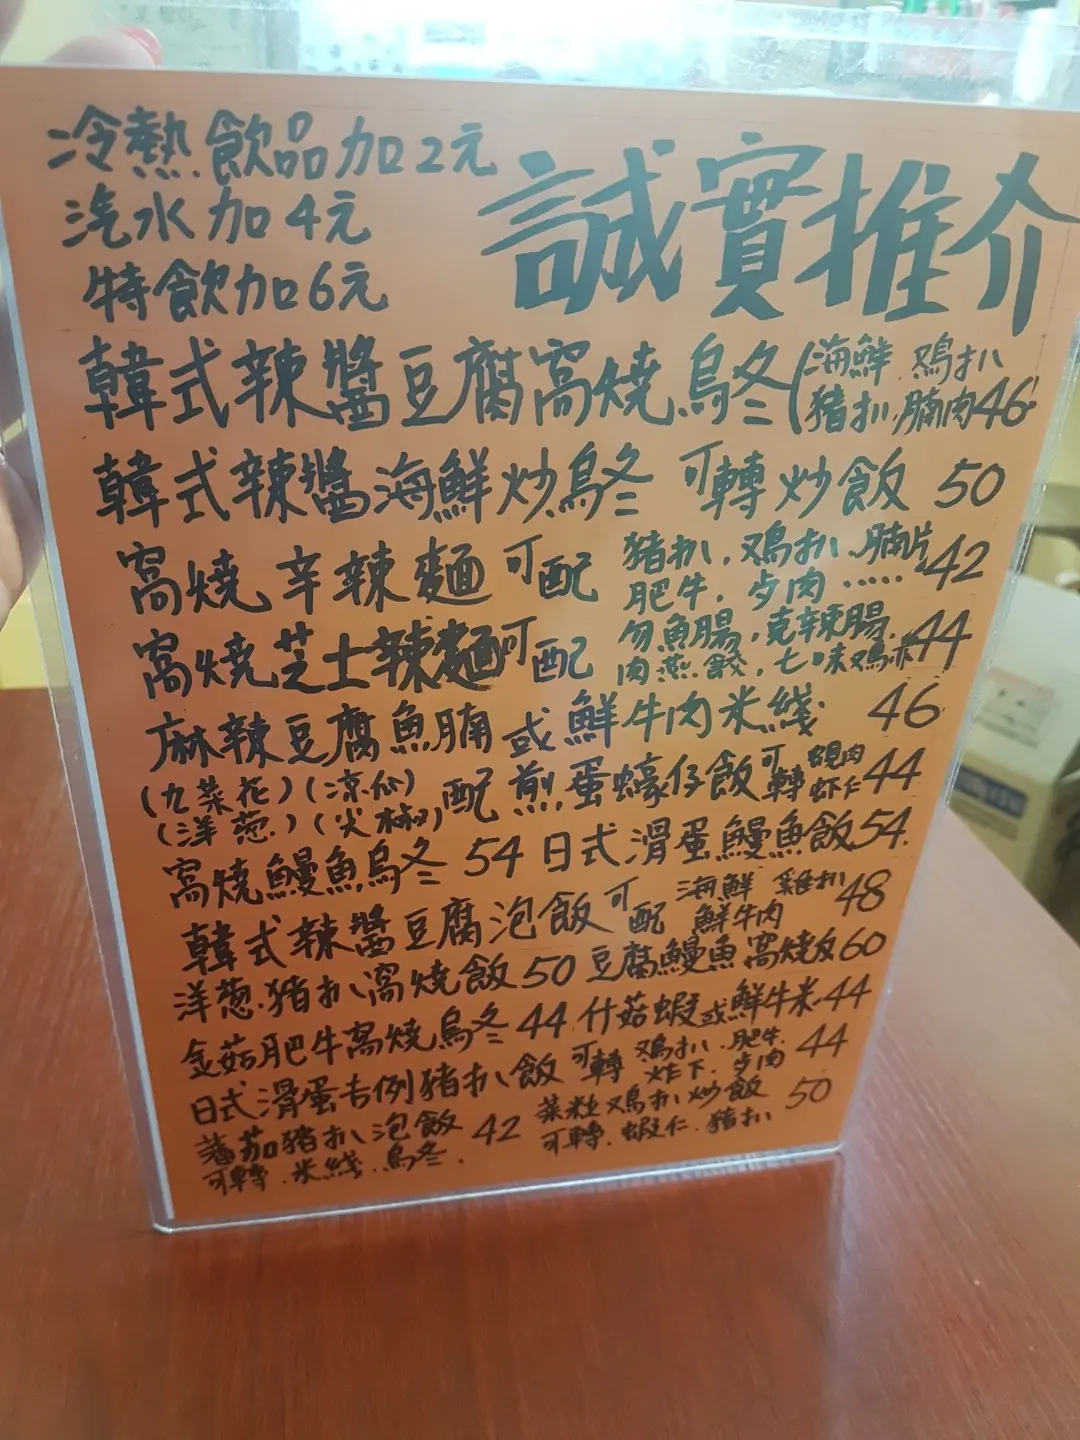 冷熱飲品加2元
汽水加4元
特飲加6元
誠實推介
韓式辣醬豆腐窩燒烏冬(海鮮.鸡扒
猪扒.腩肉46
韓式辣醬海鮮炒烏冬 可轉炒飯 50
窩燒辛辣麵可配 猪扒.鸡扒.腩片
肥牛. 歺肉..... 42
窩燒芝士辣麵可配 勿魚腸,克辣腸.
肉燕餃,七味鸡 44
麻辣豆腐魚腩或鮮牛肉米綫 46
(九菜花)(凉瓜)
(洋葱.)(尖椒)配煎蛋蠔仔飯可轉 蜆肉
虾仁 44
窩燒鰻魚烏冬 54 日式滑蛋鰻魚飯54.
韓式辣醬豆腐泡飯可配 海鮮 雞扒
鮮牛肉 48
洋葱.猪扒窩燒飯50 豆腐鰻魚窩燒饭60
金菇肥牛窩燒烏冬44 什菇蝦或鮮牛米.44
日式滑蛋吉例豬扒飯可轉 鸡扒.肥牛.
炸下. 歺肉 44
蕃茄猪扒泡飯
可轉.米綫.烏冬. 42
菜粒鸡扒炒飯
可轉.蝦仁.猪扒 50